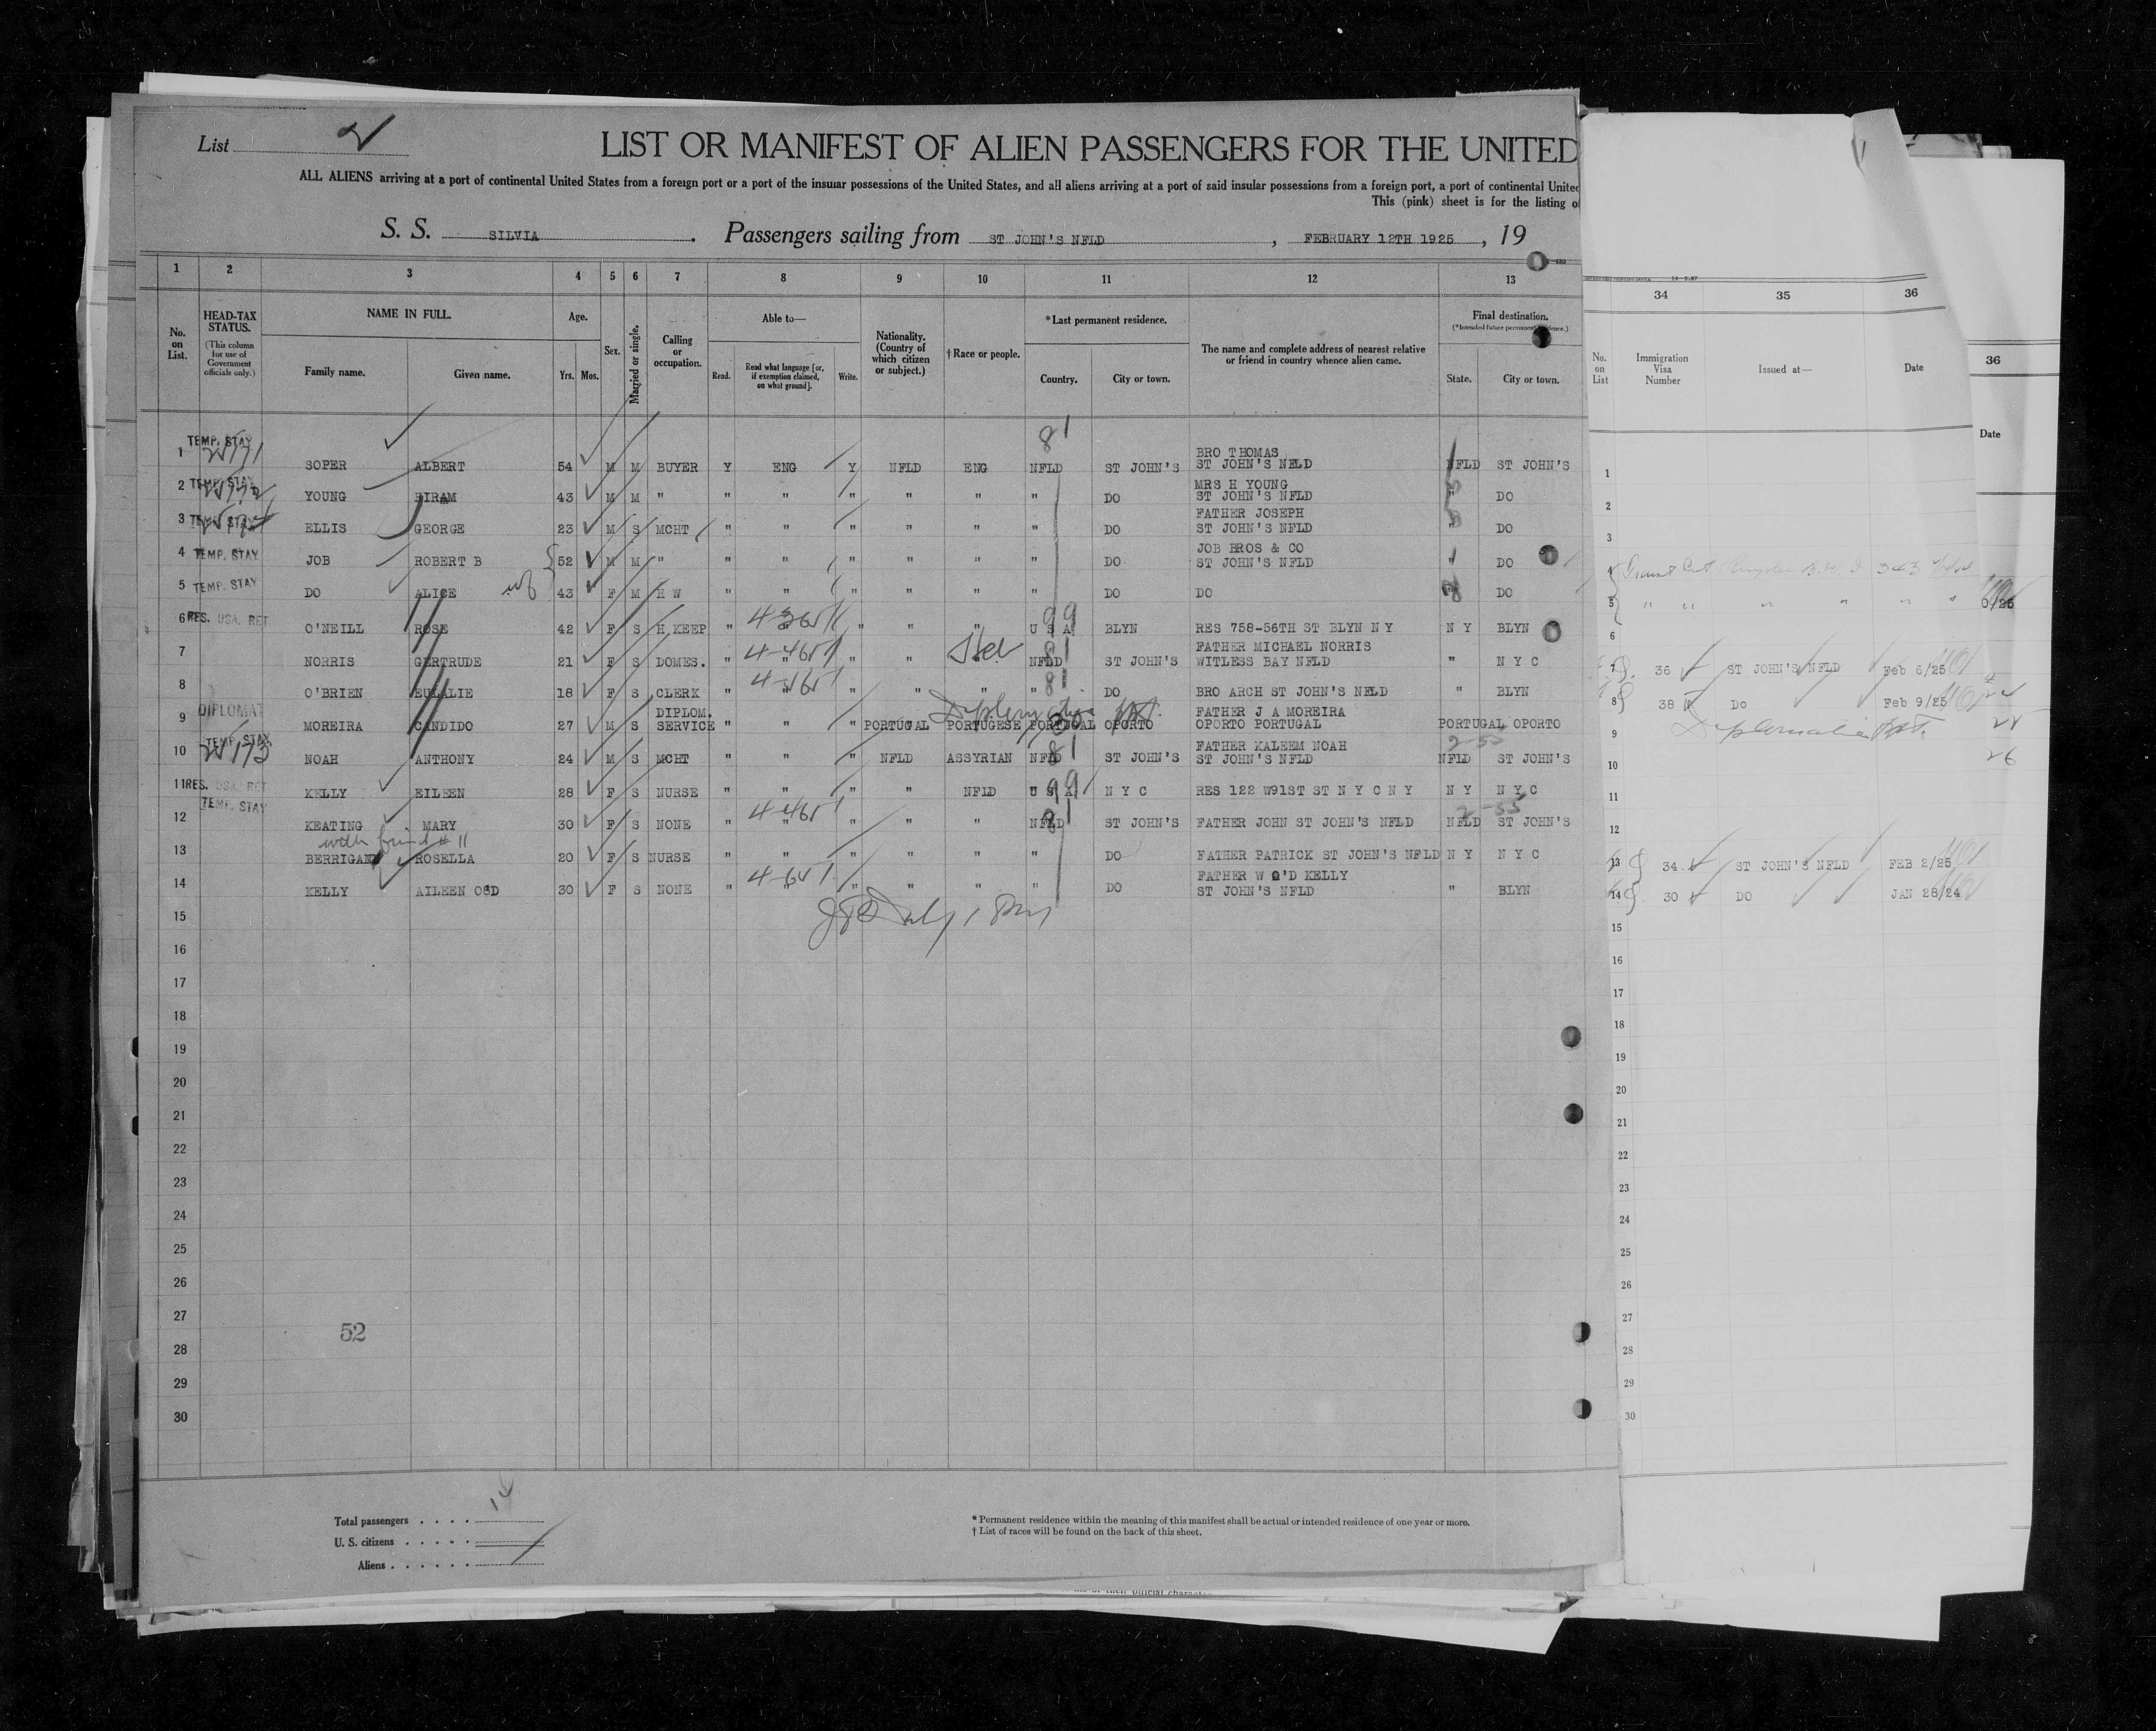 List 2
LIST OR MANIFEST OF ALIEN PASSENGERS FOR THE UNITED
ALL ALIENS arriving at a port of continental United States from a foreign port or a port of the insular possessions of the United States, and all aliens arriving at a port of said insular possessions from a foreign port, a port of continental United
This (pink) sheet is for the listing of
S. S. SILVIA . Passengers sailing from ST JOHN'S NFLD , FEBRUARY 12TH 1925 , 19
1 2 3 4 5 6 7 8 9 10 11 12 13 34 35 36
No. on List. HEAD-TAX STATUS. (This column for use of Government officials only.) NAME IN FULL. Family name. Given name. Age. Yrs. Mos. Sex. Married or single. Calling or occupation. Able to— Read. Read what language [or, if exemption claimed, on what ground]. Write. Nationality. (Country of which citizen or subject.) † Race or people. *Last permanent residence. Country. City or town. The name and complete address of nearest relative or friend in country whence alien came. Final destination. (*Intended future permanent residence.) State. City or town.
No. on List Immigration Visa Number Issued at— Date
36
Date
1 TEMP. STAY SOPER ALBERT 54 M M BUYER Y ENG Y NFLD ENG NFLD 81 ST JOHN'S BRO THOMAS ST JOHN'S NFLD NFLD ST JOHN'S 1
2 TEMP. STAY YOUNG HIRAM 43 M M " " " " " " " DO MRS H YOUNG ST JOHN'S NFLD " DO 2
3 TEMP. STAY ELLIS GEORGE 23 M S MCHT " " " " " " DO FATHER JOSEPH ST JOHN'S NFLD " DO 3
4 TEMP. STAY JOB ROBERT B 52 M M " " " " " " " DO JOB BROS & CO ST JOHN'S NFLD " DO 4
5 TEMP. STAY DO ALICE wf 43 F M H W " " " " " " DO DO " DO 5 " " " " " " 0/25
6 RES. USA. RET O'NEILL ROSE 42 F S H KEEP " " " " " U S A 99 BLYN RES 758-56TH ST BLYN N Y N Y BLYN 6
7 NORRIS GERTRUDE 21 F S DOMES. " " " " NFLD 81 ST JOHN'S FATHER MICHAEL NORRIS WITLESS BAY NFLD " N Y C 7 36 ST JOHN'S NFLD Feb 6/25
8 O'BRIEN EULALIE 18 F S CLERK " " " " " " 81 DO BRO ARCH ST JOHN'S NFLD " BLYN 8 38 DO Feb 9/25
9 DIPLOMAT MOREIRA CANDIDO 27 M S DIPLOM. SERVICE " " " PORTUGAL PORTUGESE PORTUGAL OPORTO FATHER J A MOREIRA OPORTO PORTUGAL PORTUGAL OPORTO 9
10 TEMP. STAY NOAH ANTHONY 24 M S MCHT " " " NFLD ASSYRIAN NFLD 81 ST JOHN'S FATHER KALEEM NOAH ST JOHN'S NFLD NFLD ST JOHN'S 10 26
11 RES. USA. RET KELLY EILEEN 28 F S NURSE " " " " NFLD U S A 99 N Y C RES 122 W91ST ST N Y C N Y N Y N Y C 11
12 TEMP. STAY KEATING MARY 30 F S NONE " " " " " NFLD 81 ST JOHN'S FATHER JOHN ST JOHN'S NFLD NFLD ST JOHN'S 12
with friend # 11
13 BERRIGAN ROSELLA 20 F S NURSE " " " " " " DO FATHER PATRICK ST JOHN'S NFLD N Y N Y C 13 34 ST JOHN'S NFLD FEB 2/25
14 KELLY AILEEN O'D 30 F S NONE " " " " " " DO FATHER W O'D KELLY ST JOHN'S NFLD " BLYN 14 30 DO JAN 28/24
15 15
16 16
17 17
18 18
19 19
20 20
21 21
22 22
23 23
24 24
25 25
26 26
27 27
52
28 28
29 29
30 30
Total passengers . . . .
U. S. citizens . . . . .
Aliens . . . . . .
* Permanent residence within the meaning of this manifest shall be actual or intended residence of one year or more.
† List of races will be found on the back of this sheet.